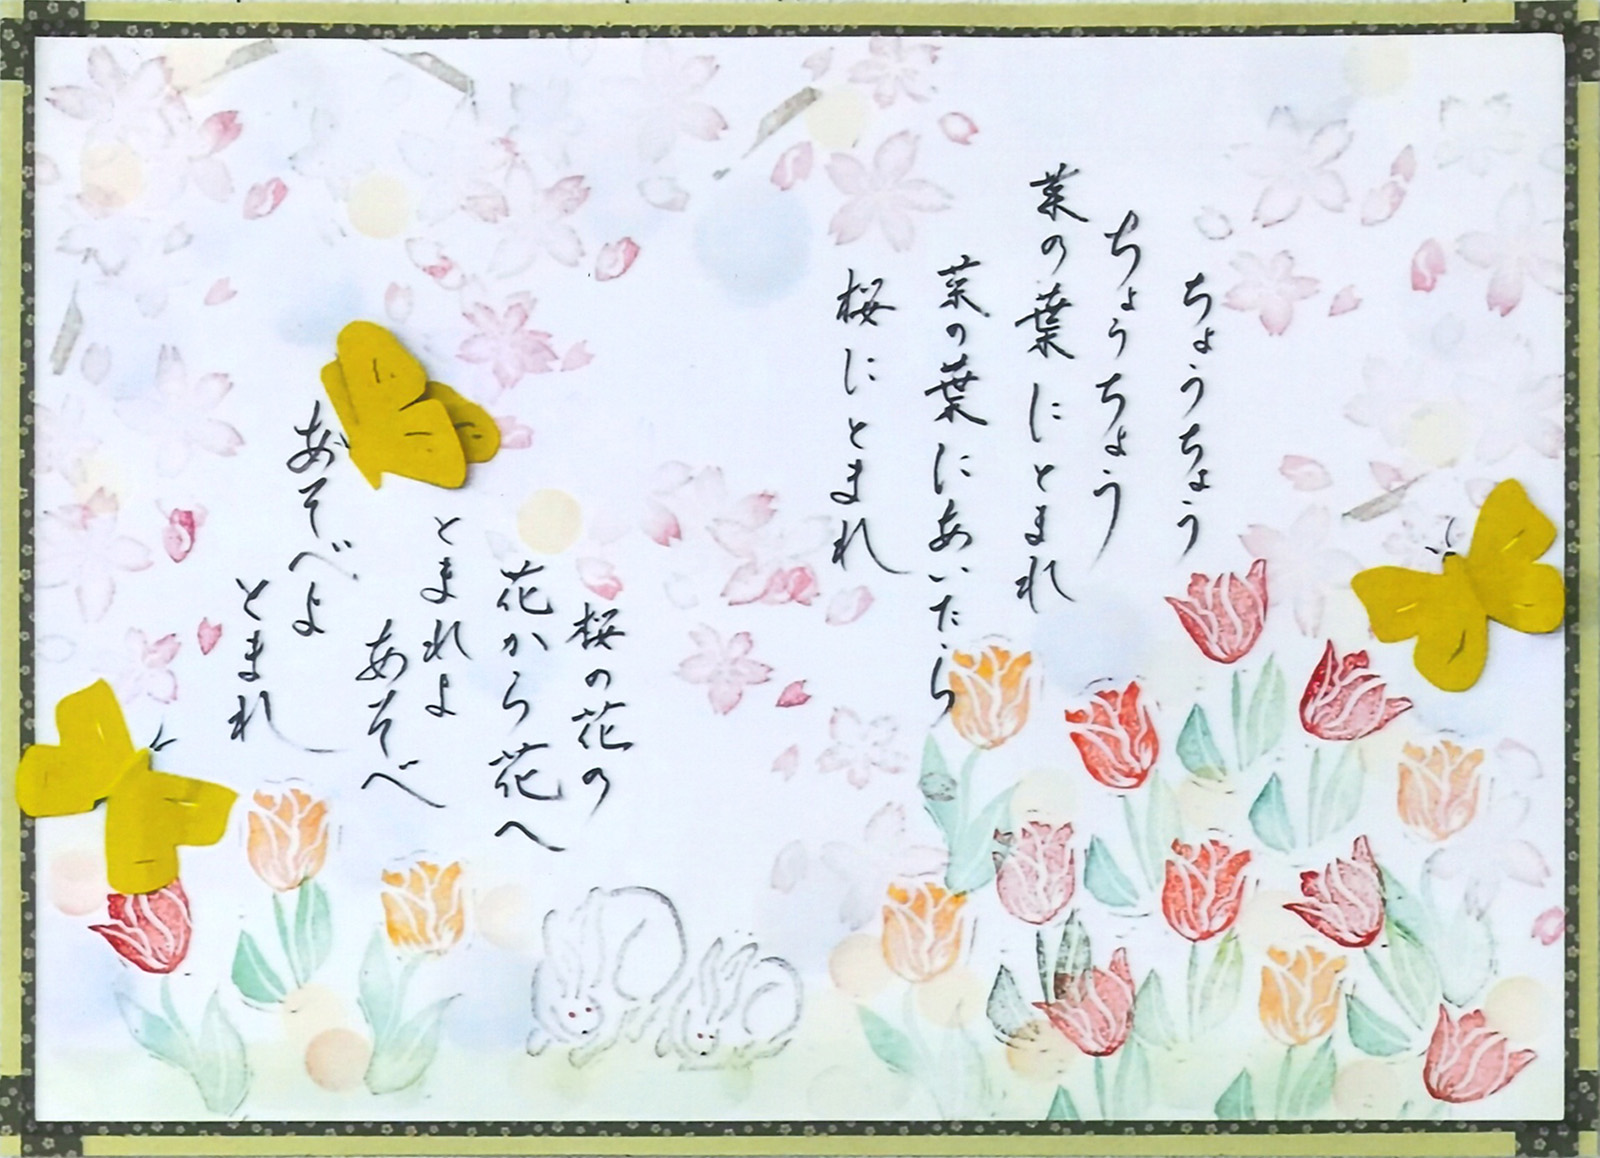 ちょうちょう
ちょうちょう
菜の葉にとまれ
菜の葉にあいたら
桜にとまれ
桜の花の
花から花へ
とまれよ
あそべ
あそべよ
とまれ